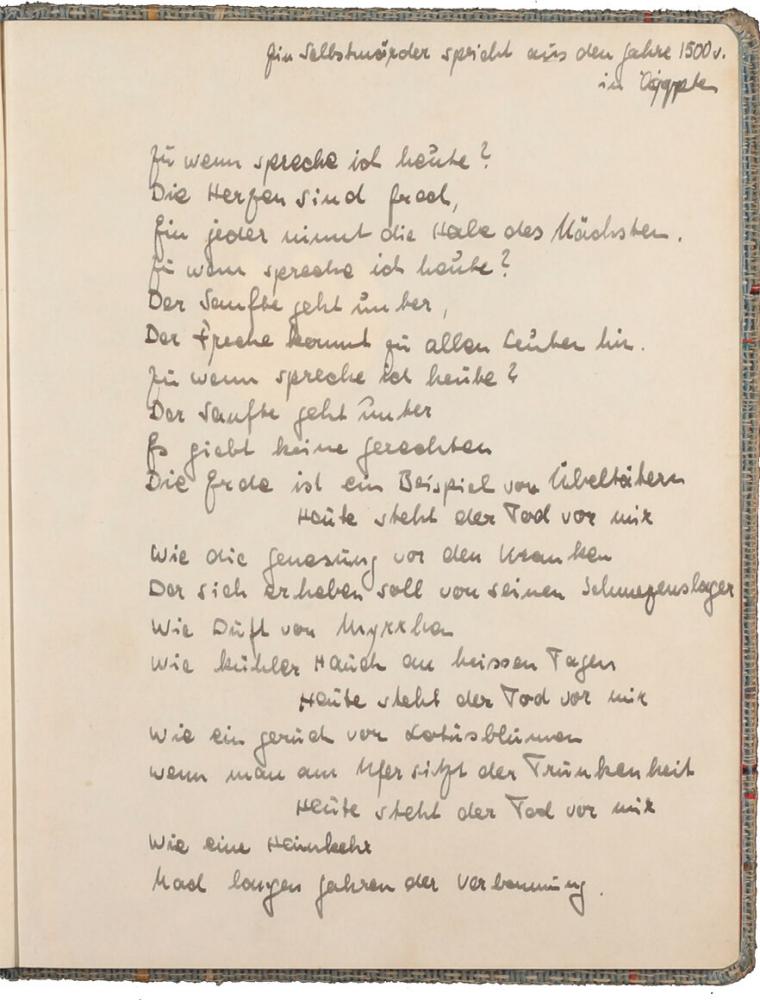 Ein Selbstmörder spricht aus den Jahre 1500 v.
in Ägypten
Zu wenn spreche ich heute?
Die Herzen sind frech,
Ein jeder nimmt die Habe des Nächsten.
Zu wem spreche ich heute?
Der Sanfte geht unter,
Der Freche kommt zu allen Leuten hin.
Zu wenn spreche ich heute?
Der Sanfte geht unter
Es giebt keine gerechten
Die Erde ist ein Beispiel von Übeltätern
Heute steht der Tod vor mir
Wie die genesung vor den Kranken
Der sich erheben soll von seinen Schmerzenslager
Wie Duft von Myrrhen
Wie kühler Hauch an heissen Tagen
Heute steht der Tod vor mir
Wie ein geruch von Lotusblumen
wenn man am Ufer sitzt der Trunkenheit
Heute steht der Tod vor mir
Wie eine Heimkehr
Nach langen Jahren der Verbannung.